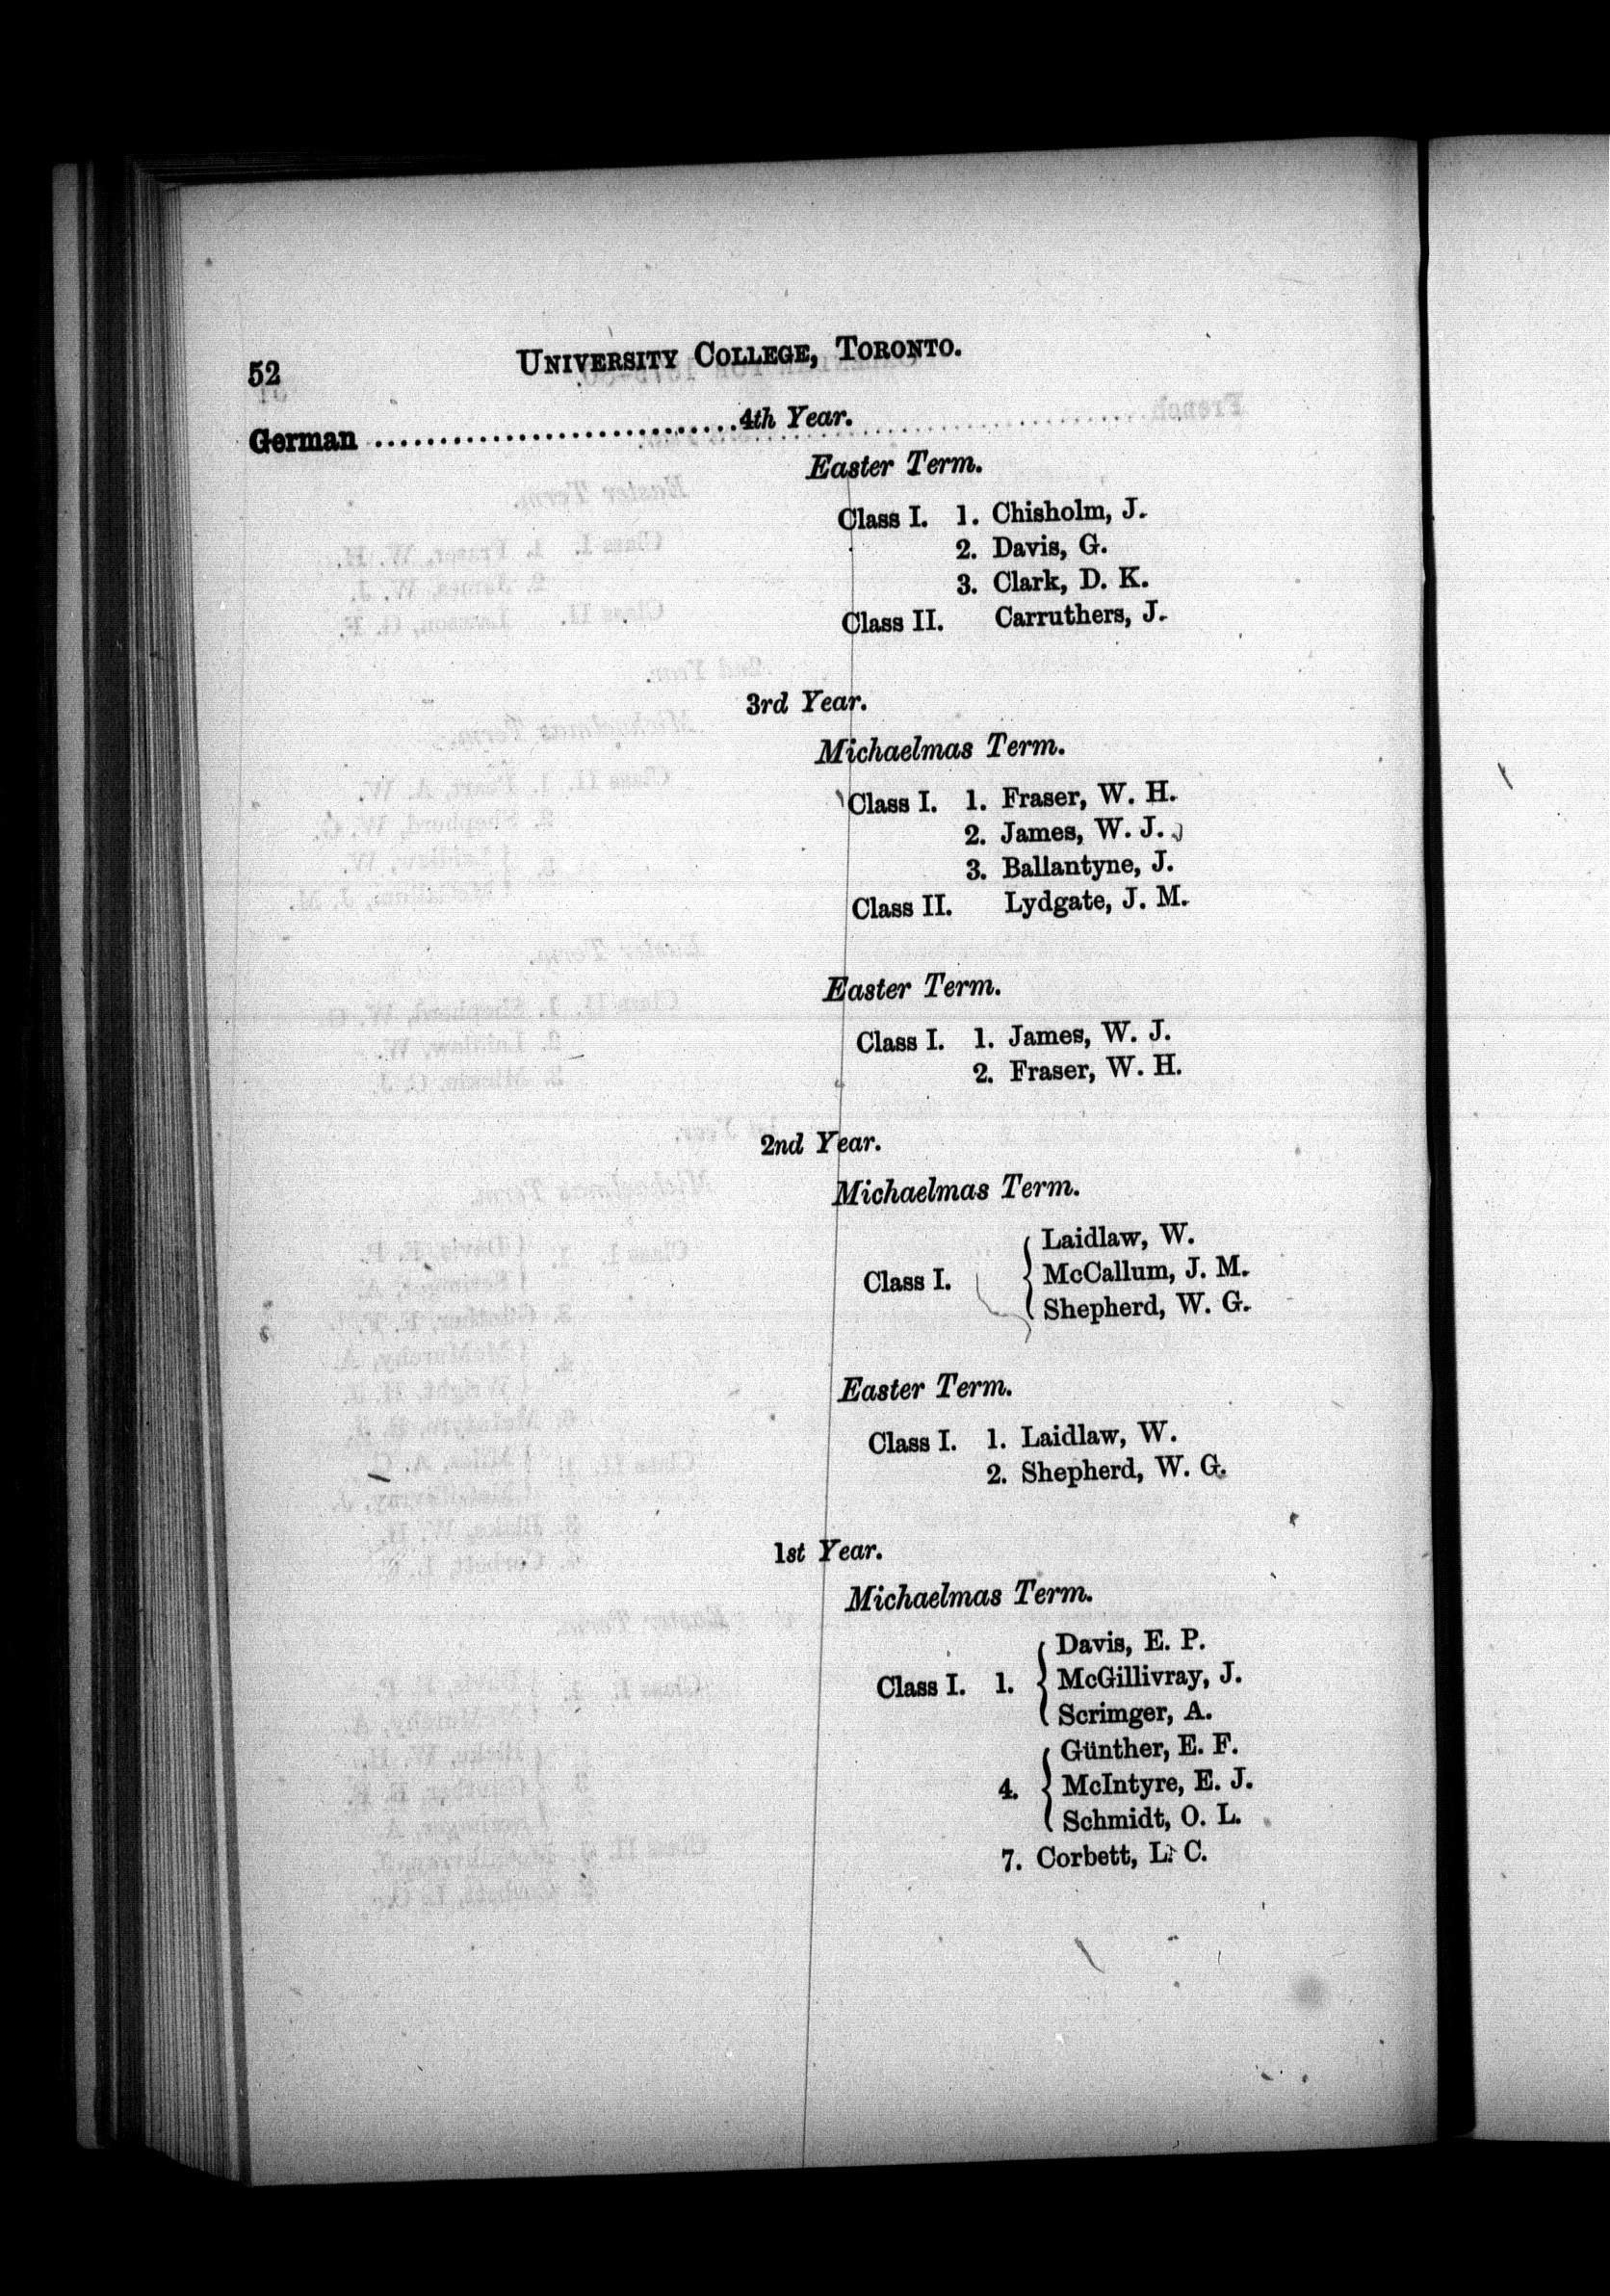 52 University College, Toronto.
German ............................ 4th Year.
Easter Term.
Class I. 1. Chisholm, J.
2. Davis, G.
3. Clark, D. K.
Class II. Carruthers, J.
3rd Year.
Michaelmas Term.
Class I. 1. Fraser, W. H.
2. James, W. J.
3. Ballantyne, J.
Class II. Lydgate, J. M.
Easter Term.
Class I. 1. James, W. J.
2. Fraser, W. H.
2nd Year.
Michaelmas Term.
Laidlaw, W.
Class I. { McCallum, J. M.
Shepherd, W. G.
Easter Term.
Class I. 1. Laidlaw, W.
2. Shepherd, W. G.
1st Year.
Michaelmas Term.
Davis, E. P.
Class I. 1. { McGillivray, J.
Scrimger, A.
Günther, E. F.
4. { McIntyre, E. J.
Schmidt, O. L.
7. Corbett, L. C.